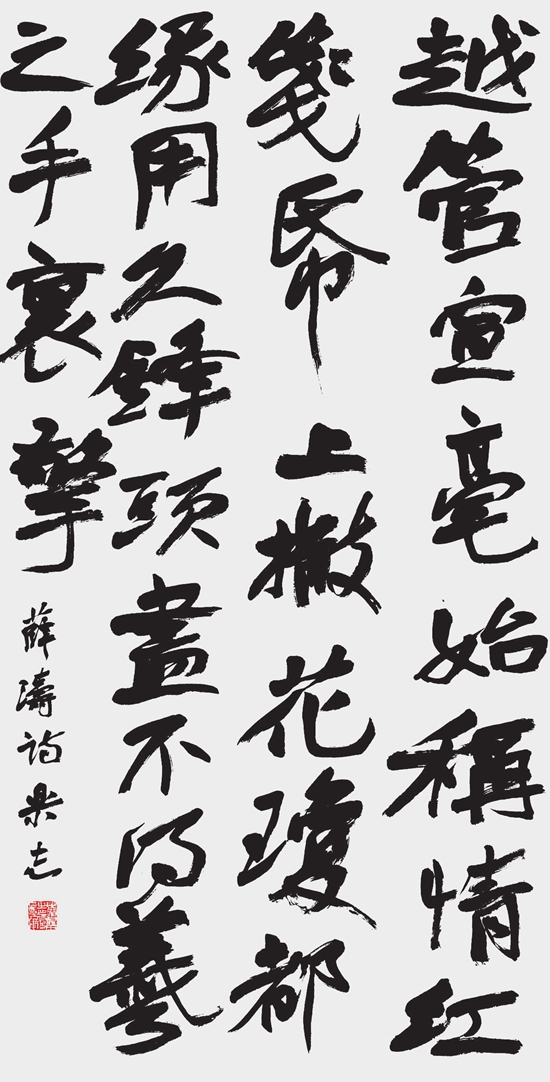 越管宣毫始稱情紅
箋帋上撒花瓊都
緣用久鋒頭盡不得羲
之手裏擎
薛濤詩 志